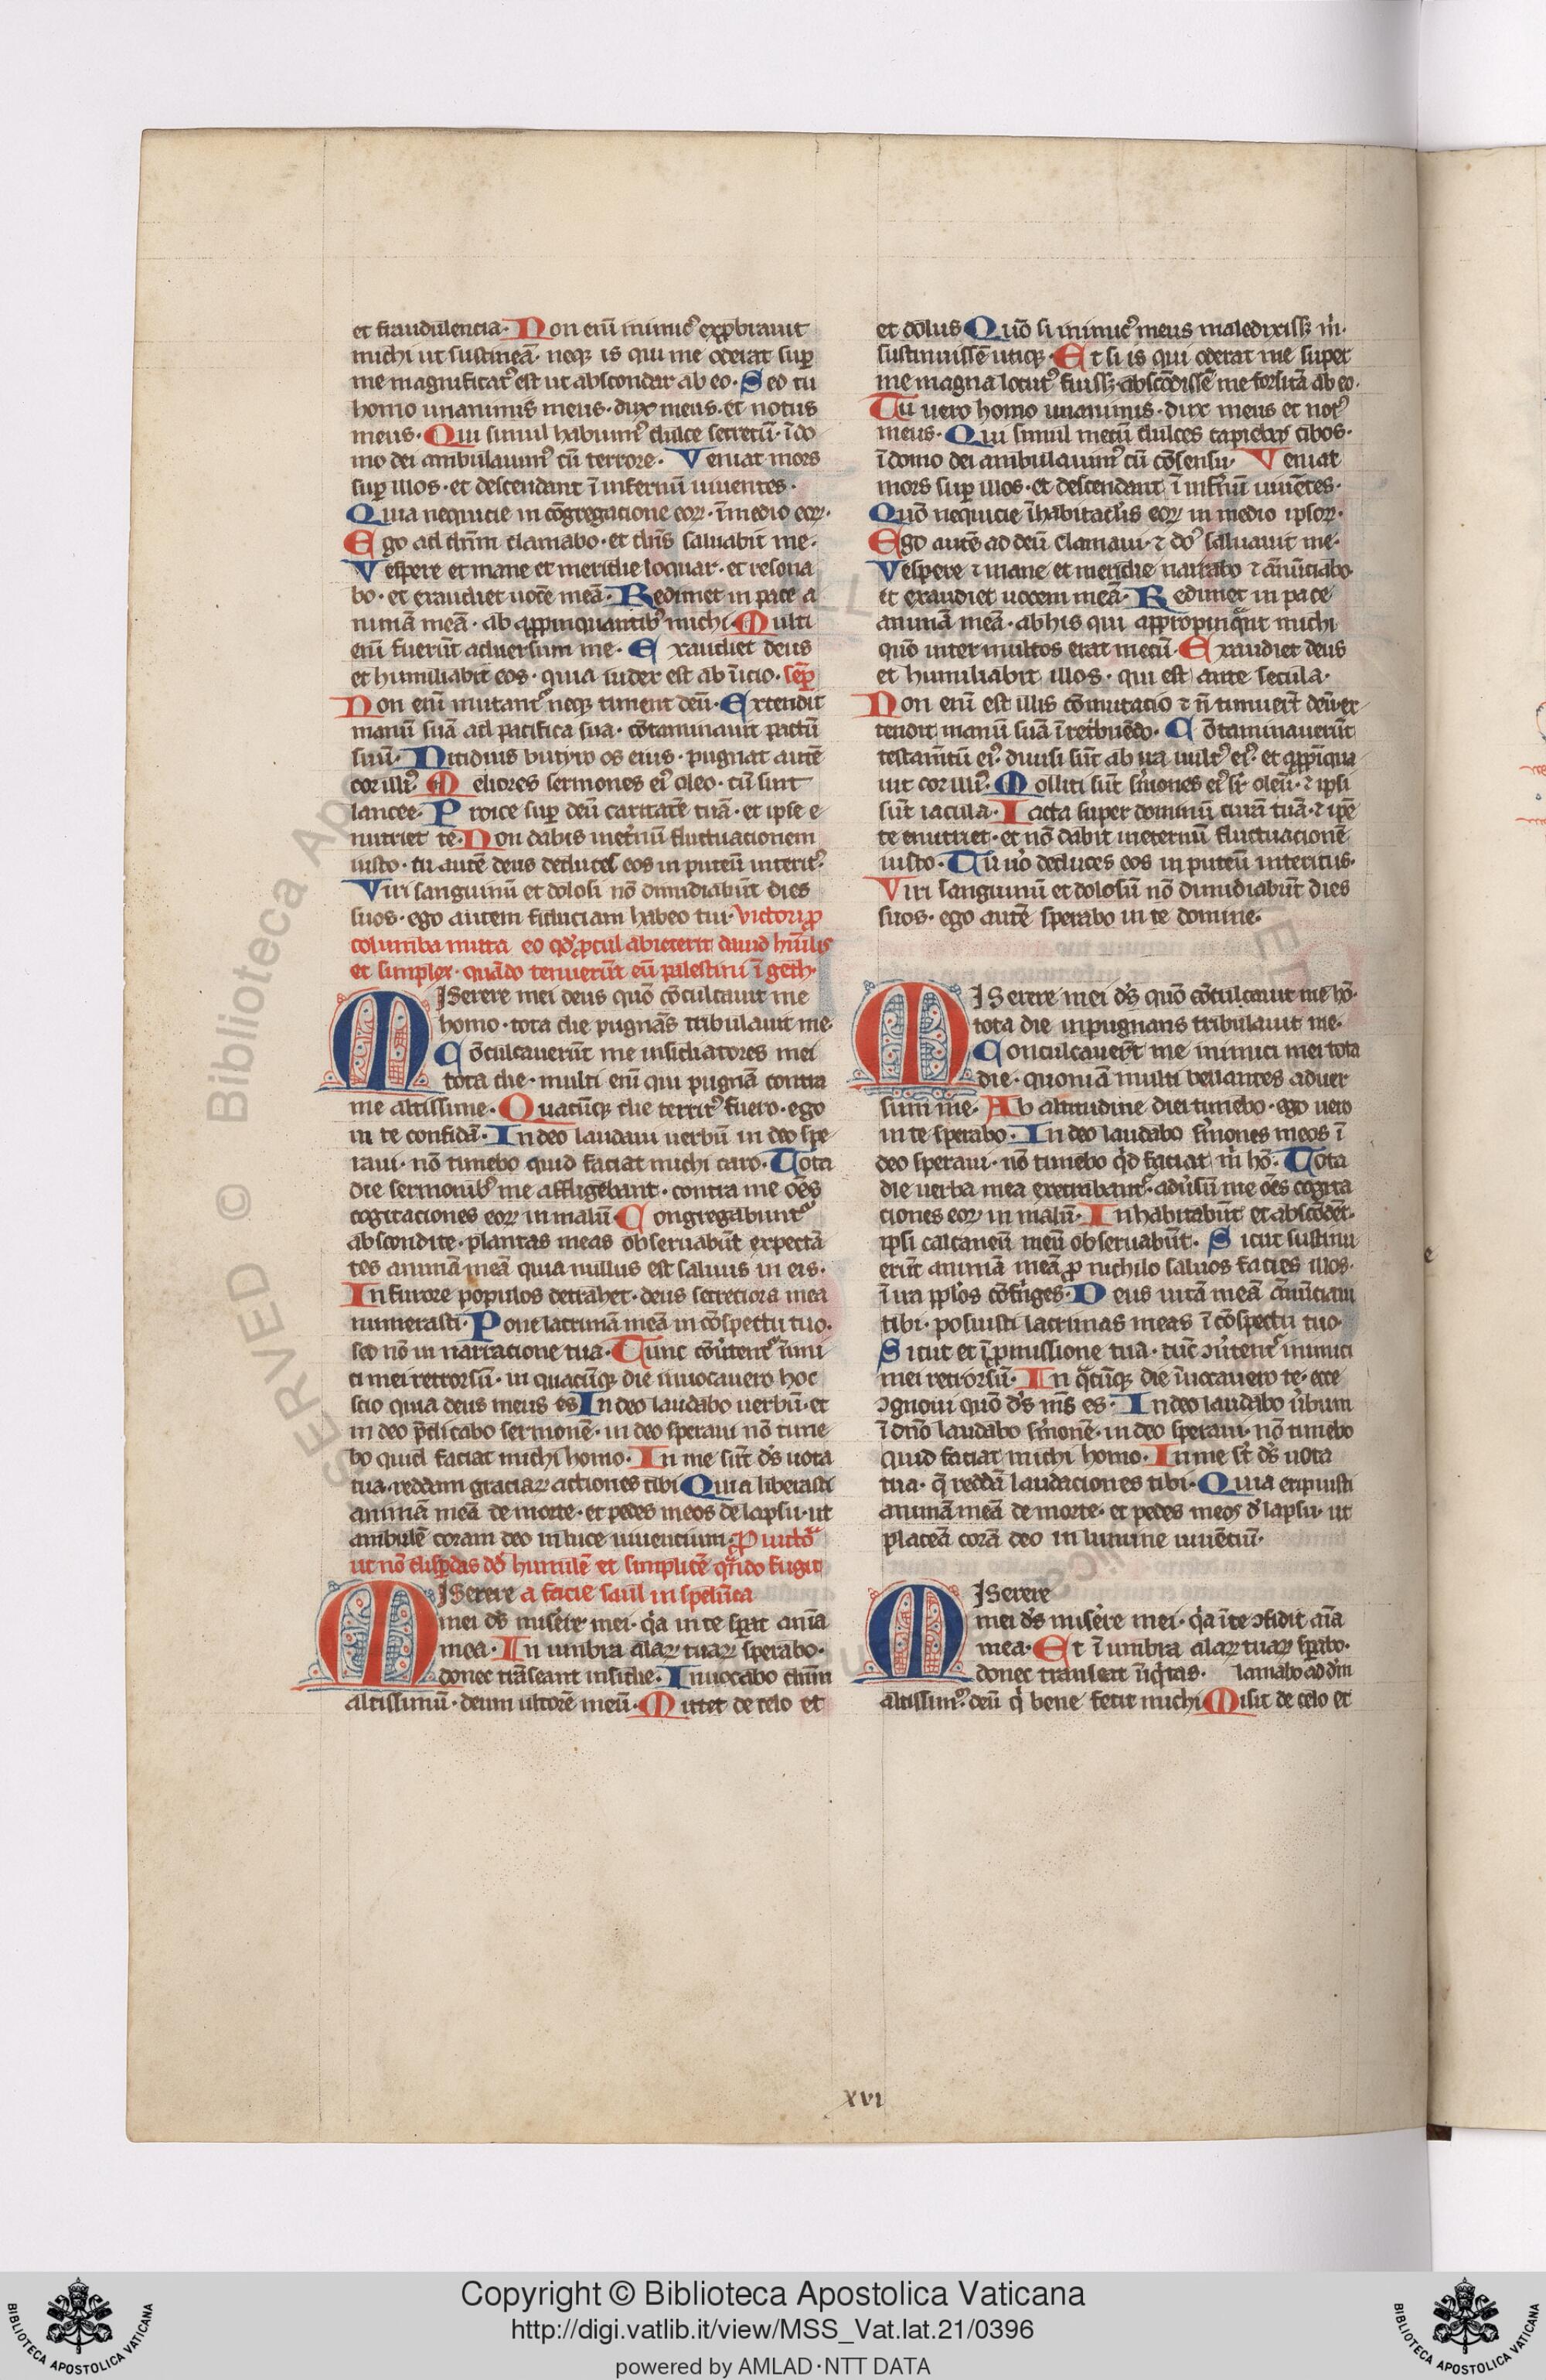 et fraudulencia· Non eni᷑ inimic᷒ exꝓbrauit
michi ut sustineā· neqꝫ is qui me oderat suꝑ
me magnificat᷒ est ut abscondar ab eo· Sed tu
homo unanimis meus· dux meus· et notus
meus· Qui simul habuim᷒ dulce secretū· ī do
mo dei ambulauim᷒ cū terrore· Veniat mors
suꝑ illos· et descendant ī infernū uiuentes·
Quia nequicie in cōgregacione eoꝝ· ī medio eoꝝ·
Ego ad dn̄m clamabo· et dn̄s saluabit me·
Vespere et mane et meridie loquar· et resona
bo· et exaudiet uocē meā· Redimet in pace a
nimā meā· ab aꝓpinquantib᷒ michi· Multi
enī fuerūt aduersum me· Exaudiet deus
et humiliabit eos· quia iudex est ab īicio· semꝑ
Non enī mutant᷑ neqꝫ timent deū· Extendit
manū suā ad pacifica sua· cōtaminauit pactū
suū· Nitidius butyro os eius· pugnat autē
cor illi᷒· Meliores sermones ei᷒ oleo· cū sint
lancee· Proice suꝑ deū caritatē tuā· et ipse e
nutriet te· Non dabis inet̄nū fluctuationem
iusto· tu autē deus deduces eos in puteū interit᷒·
Viri sanguinū et dolosi nō dimidiabūt dies
suos· ego autem fiduciam habeo tui· victori ꝓ
columba muta eo qd̓ ꝓcul abiecerit dauid hūilis
et simplex· quādo tenuerūt eū palestini ī geth·
MIserere mei deus quō cōculcauit me
homo· tota die pugnās tribulauit me·
Cōculcauerūt me insidiatores mei
tota die· multi enī qui pugnā contra
me altissime· Quacūqꝫ die territ᷒ fuero· ego
in te confidā· In deo laudaui uerbū in deo spe
raui· nō timebo quid faciat michi caro· Tota
die sermonib᷒ me affligebant· contra me oēs
cogitaciones eoꝝ in malū· Congregabunt᷑
abscondite· plantas meas obseruabūt expectā
tes animā meā quia nullus est saluus in eis·
In furore populos detrahet· deus secretiora mea
numerasti· Pone lacrimā meā in cōspectu tuo·
sed nō in narracione tua· Tunc cōu̓tent᷑ inimi
ci mei retrorsū· in quacūqꝫ die inuocauero hoc
scio quia deus meus es In deo laudabo uerbū· et
in deo p̄dicabo sermonē· in deo speraui nō time
bo quid faciat michi homo· In me sūt d̓s uota
tua· reddam graciaꝝ actiones tibi Quia liberasti
animā meā de morte· et pedes meos de lapsu· ut
ambulē coram deo in luce uiuencium· P uictō᷑
ut nō disꝑdas dd̓ humilē et simplicē qn̄do fugit
MIserere a facie saul in spelūca
mei d̓s misere mei· q̓a in te sꝑat anīa
mea· In umbra alaꝝ tuaꝝ sperabo·
donec trāseant insidie· Inuocabo dn̄m
altissimū· deum ultorē meū· Mittet de celo et
et dolus Quō si inimic᷒ meus maledixissꝫ m̓·
sustinuissē utiqꝫ· Et si is qui oderat me super
me magna locut᷒ fuissꝫ· abscōdissē me forsitā ab eo·
Tu uero homo unanimis· dux meus et not᷒
meus· Qui simul mecū dulces capiebas cibos·
ī domo dei ambulauim᷒ cū cōsensu· Veniat
mors suꝑ illos· et descendant ī inf̓nū uiuētes·
Quō nequicie ī habitacl̓is eoꝝ in medio ipsoꝝ·
Ego autē ad deū clamaui· ⁊ do᷒ saluauit me·
Vespere ⁊ mane et meridie narrabo ⁊ ānūciabo
et exaudiet uocem meā· Redimet in pace
animā meā· ab his qui appropinqͣnt michi
quō inter multos erat mecū· Exaudiet deus
et humiliabit illos· qui est ante secula·
Non enī est illis cōmutacio ⁊ n̄ timuert̄ deū· ex
tendit manū suā ī retbuēdo· Cōtaminauerūt
testam̄tū ei᷒· diuisi sūt ab ira uult᷒ ei᷒· et aꝓpīqua
uit cor illi᷒· Molliti sūt s̓mones ei᷒ sr̄ oleū· ⁊ ipsi
sūt iacula· Iacta super dominū curā tuā· ⁊ ip̄e
te enutriet· et nō dabit ineternū fluctuacionē
iusto· Tu u̓o deduces eos in puteū interitus·
Viri sanguinū et dolosū nō dimidiabūt dies
suos· ego autē sperabo in te domine·
MIserere mei d̓s quō cōculcauit me hō·
tota die inpugnans tribulauit me·
Conculcauer̄t me inimici mei tota
die· quoniā multi bellantes aduer
sum me· Ab altitudine diei timebo· ego uero
in te sperabo· In deo laudabo s̓mones meos ī
deo speraui· nō timebo q̓d faciat m̓ hō· Tota
die uerba mea execrabant᷑· adu̓sū me oēs cogita
ciones eoꝝ in malū· Inhabitabūt et abscōdēt·
ipsi calcaneū meū obseruabūt· Sicut sustinu
erūt animā meā ꝓ nichilo saluos facies illos·
ī ira pp̄los cōf̓nges· Deus uitā meā ānūciaui
tibi· posuisti lacrimas meas ī cōspectu tuo·
Sicut et ī ꝓmissione tua· tūc ↄu̓tent᷑ inimici
mei retrorsū· In qͣcūqꝫ die īuocauero te· ecce
ↄgnoui quō d̓s m̄s es· In deo laudabo u̓bum
ī dn̄o laudabo s̓monē· in deo speraui· nō timebo
quid faciat michi homo· In me st̄ d̓s uota
tua· q̄ reddā laudaciones tibi· Quia eripuisti
animā meā de morte· et pedes meos d̓ lapsu· ut
placeā corā deo in lumine uiuēciū·
MIserere
mei d̓s misere mei· q̓a ī te ↄfidit aīa
mea· Et ī umbra alaꝝ tuaꝝ sꝑabo·
donec transeat īiq̓tas· lamabo ad dm̄
altissim᷒ deū q̓ bene fecit michi Misit de celo et
xvi
Copyright © Biblioteca Apostolica Vaticana
http://digi.vatlib.it/view/MSS_Vat.lat.21/0396
powered by AMLAD·NTT DATA